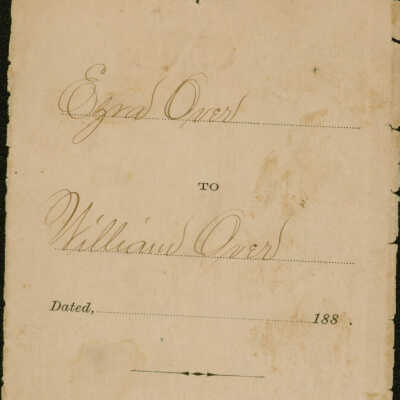 Ezra Over
TO
William Over
Dated, 188 .